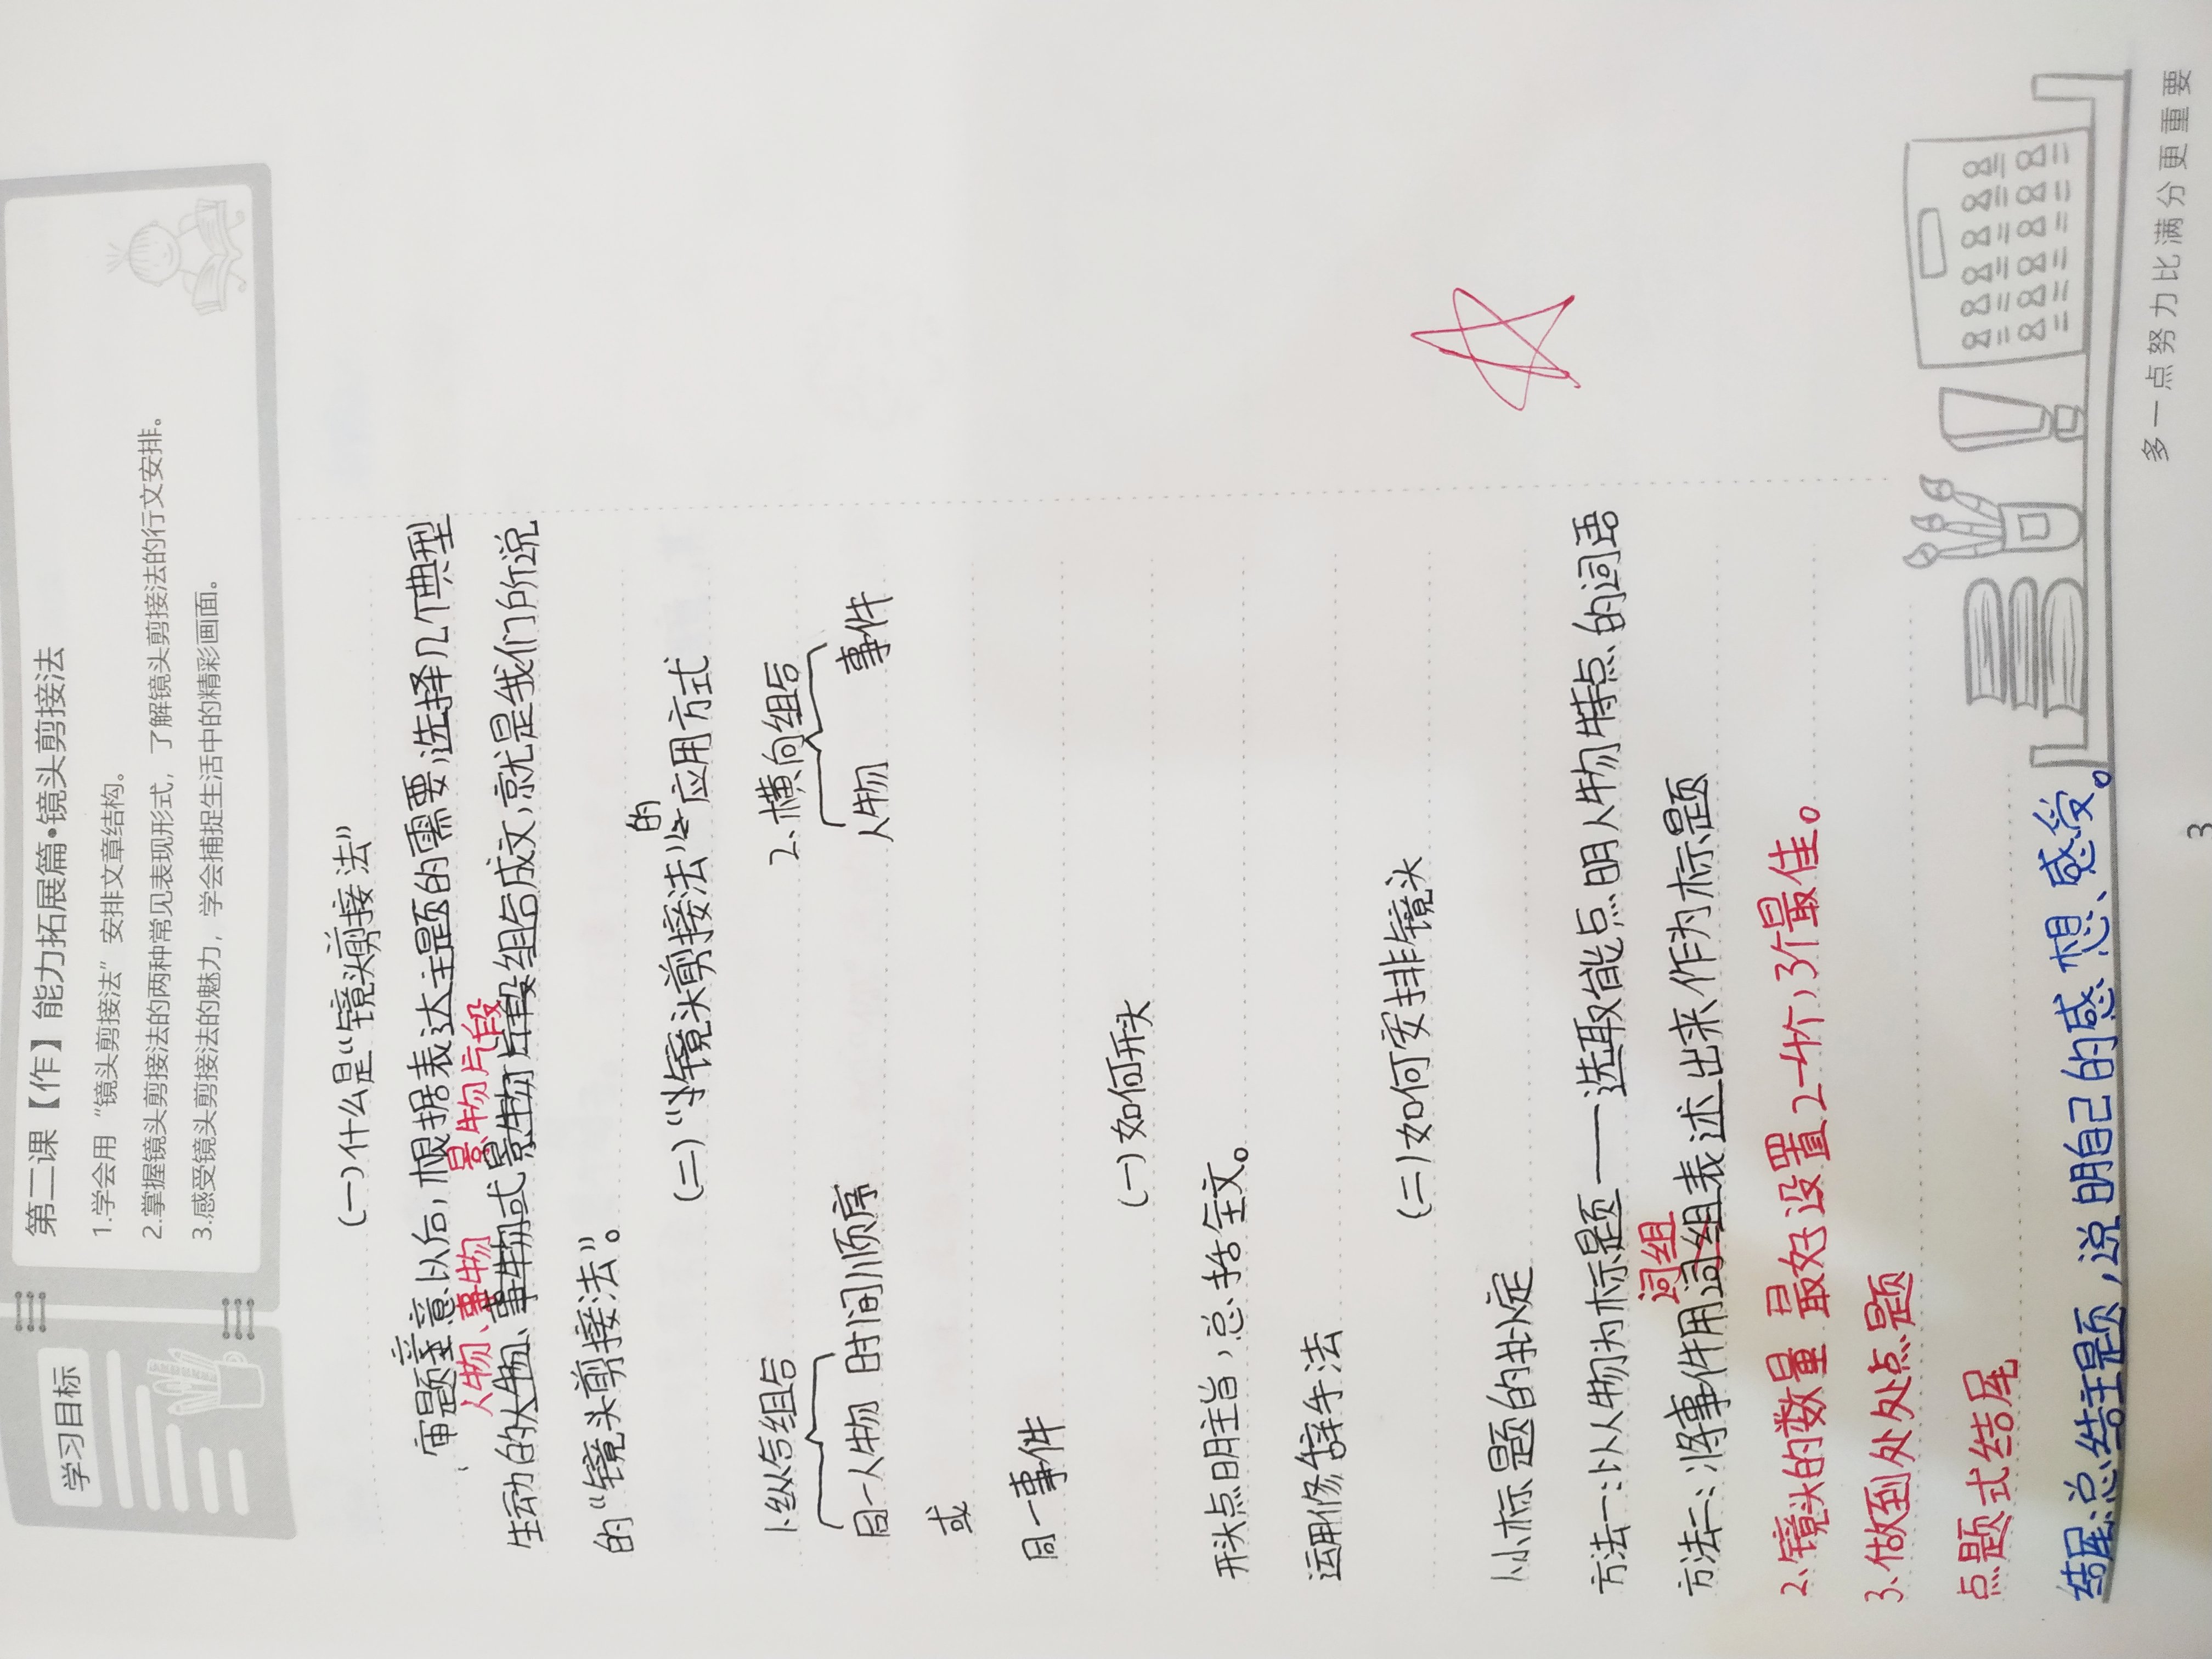 第二课【作】能力拓展篇·镜头剪接法
学习目标
1.学会用“镜头剪接法”安排文章结构。
2.掌握镜头剪接法的两种常见表现形式，了解镜头剪接法的行文安排。
3.感受镜头剪接法的魅力，学会捕捉生活中的精彩画面。
(一)什么是“镜头剪接法”
审题立意以后，根据表达主题的需要，选择几个典型
人物、事物 景物片段
生动的人物、事物或景物片段组合成文，就是我们所说
的“镜头剪接法”。
的
(二)“镜头剪接法”应用方式
1.纵向组合 2.横向组合
同一人物 时间顺序 人物 事件
或
同一事件
(一)如何开头
开头点明主旨，总括全文。
运用修辞手法
(二)如何安排镜头
1.小标题的拟定
方法一：以人物为标题——选取能点明人物特点的词语
词组
方法二：将事件用词组表述出来作为标题
2.镜头的数量 最好设置2-4个，3个最佳。
3.做到处处点题
点题式结尾
结尾总结主题，说明自己的感想、感受。
多一点努力比满分更重要
3